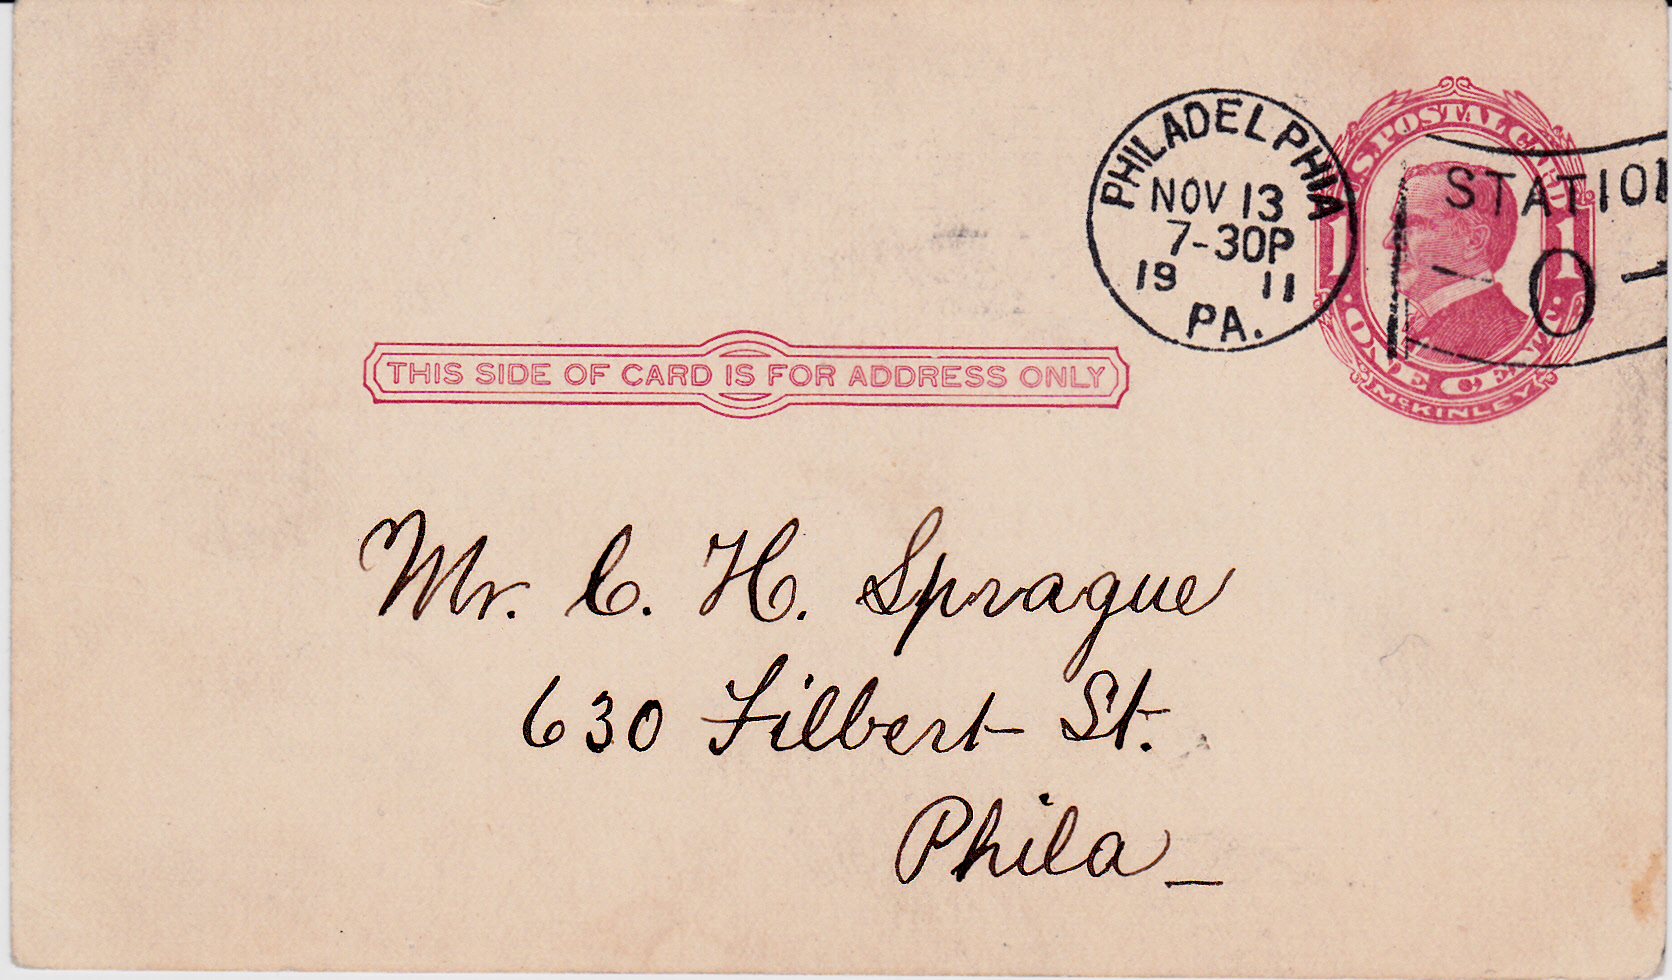 PHILADELPHIA
NOV 13
7-30P
19 11
PA.
STATION
O
U.S. POSTAL CARD
1 1
· ONE CENT ·
McKINLEY
THIS SIDE OF CARD IS FOR ADDRESS ONLY
Mr. C. H. Sprague
630 Filbert St.
Phila_